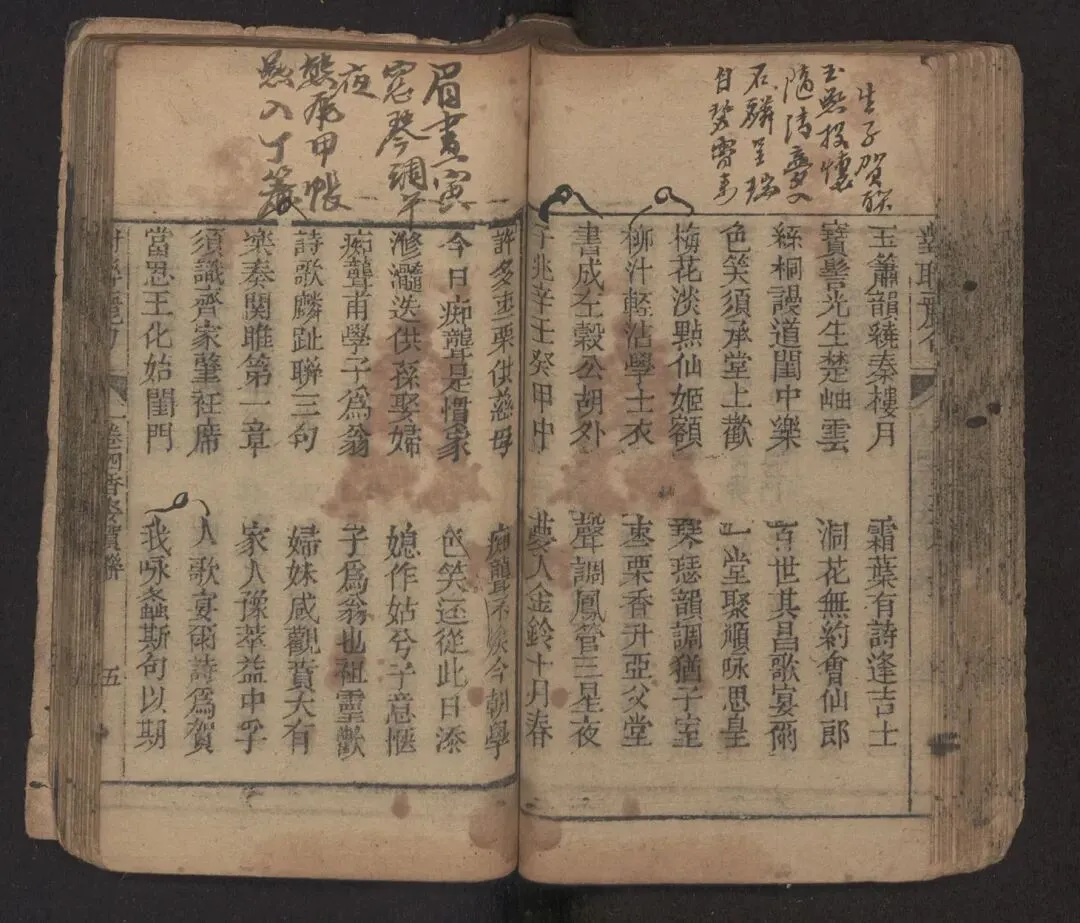 生子賀聯
玉燕投懷
隨清夢入
石麟呈瑞
自碧霄來
玉簫韻繞秦樓月 霜葉有詩逢吉士
寶髻光生楚岫雲 洞花無約會仙郎
絲桐謾道閨中樂 百世其昌歌宴爾
色笑須承堂上歡 一堂聚順咏思皇
梅花淡點仙姬額 琴瑟韻調猶子室
柳汁輕沾學士衣 棗栗香升亞父堂
書成左轂公胡外 聲調鳳管三星夜
子兆辛壬癸甲中 夢入金鈴十月春
眉畫寅
窓琴調午
夜
甲帳
入丁簾
許多棗栗供慈母 痴聾不今朝學
今日痴聾是慣家 色笑還從此日添
滫瀡迭供孫娶婦 媳作姑兮子意愜
痴聾甫學子為翁 子為翁也祖靈歡
詩歌麟趾聯三句 婦妹咸觀賁大有
樂奏関雎第一章 家人豫萃益中孚
須識齊家肇衽席 人歌宴爾詩爲賀
當思王化始閨門 我咏螽斯句以期
五